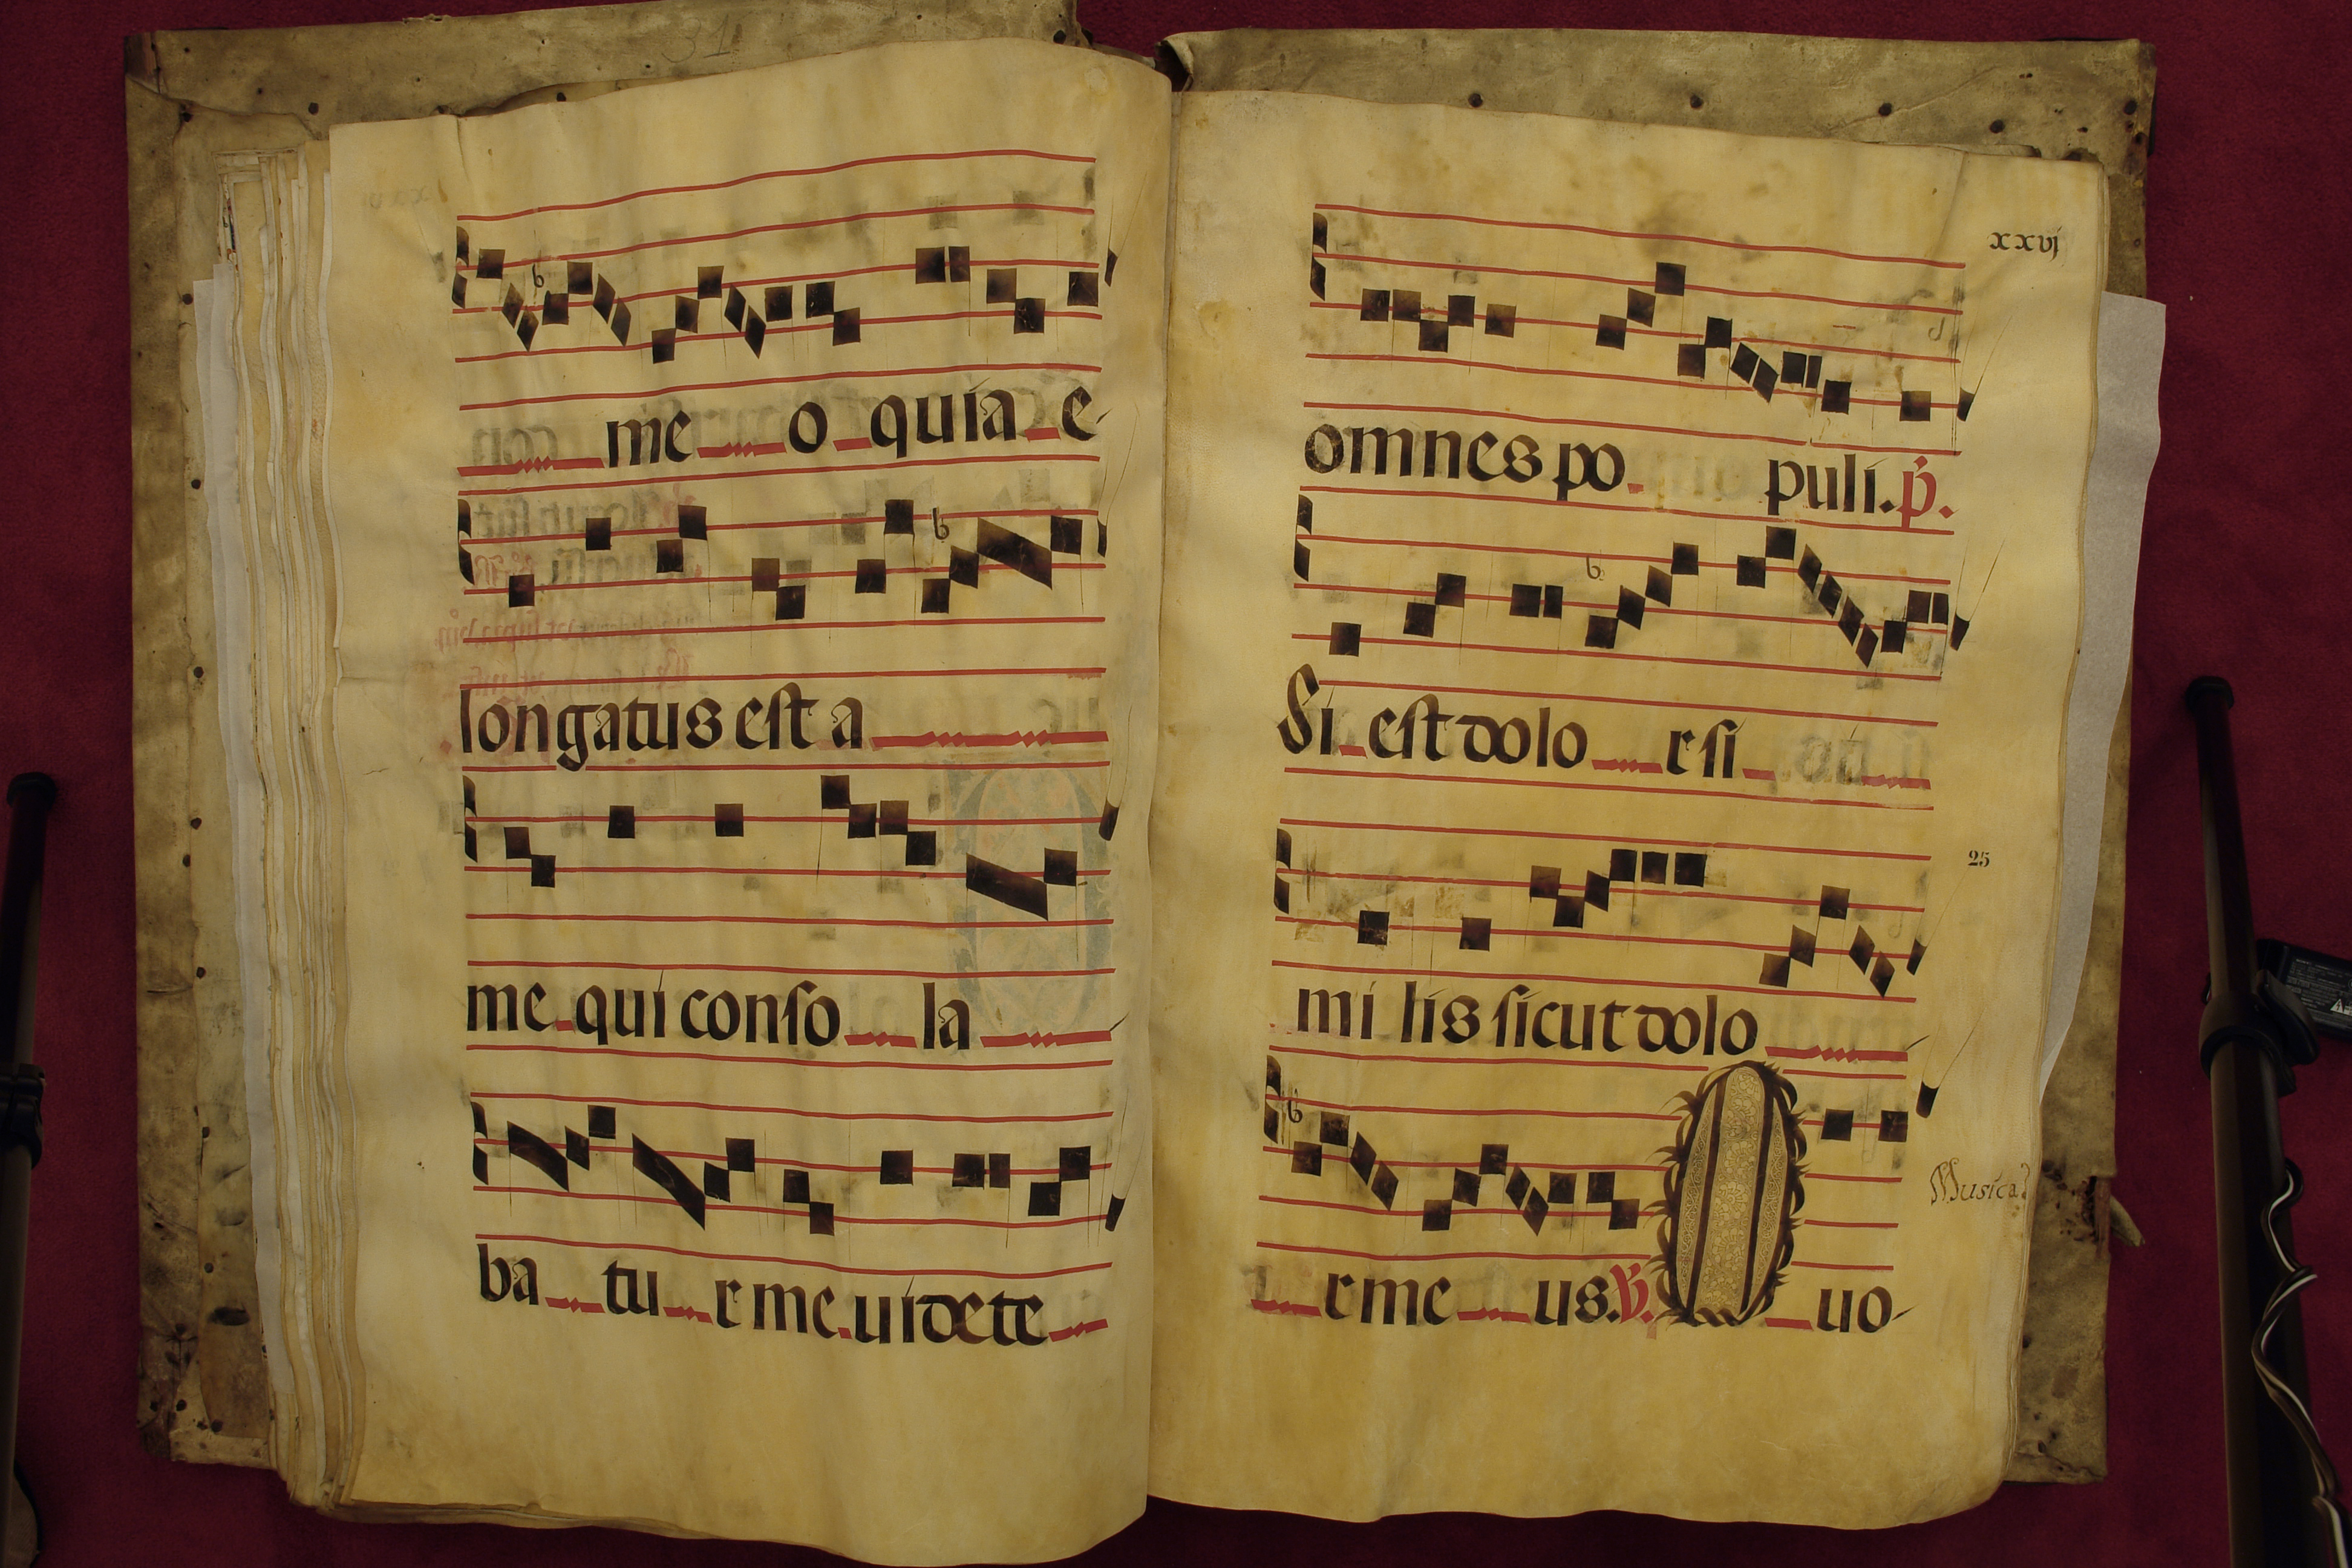 me o quia e-
longatus est a
me qui conso la
ba tu r me. uidete
xxvj
omnes po puli. p.
Si est dolo r si
25
mi lis sicut dolo
Musica
r me us. V. O uo-